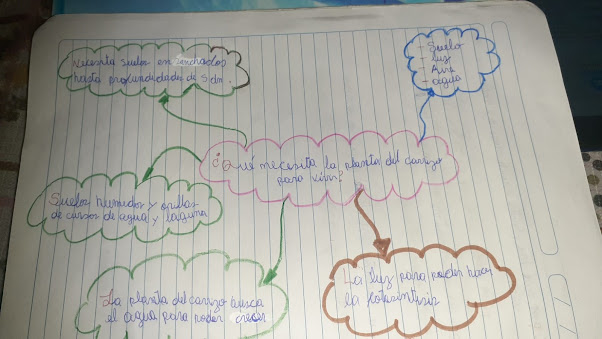 Necesita suelos en charcados
hasta profundidades de 5 dm.
- Suelo
- luz
- Aire
- agua
¿Qué necesita la planta del carrizo
para vivir?
Suelos humedos y orillas
de cursos de agua y laguna
La planta del carrizo busca
el agua para poder crecer
La luz para poder hacer
la fotosintesis